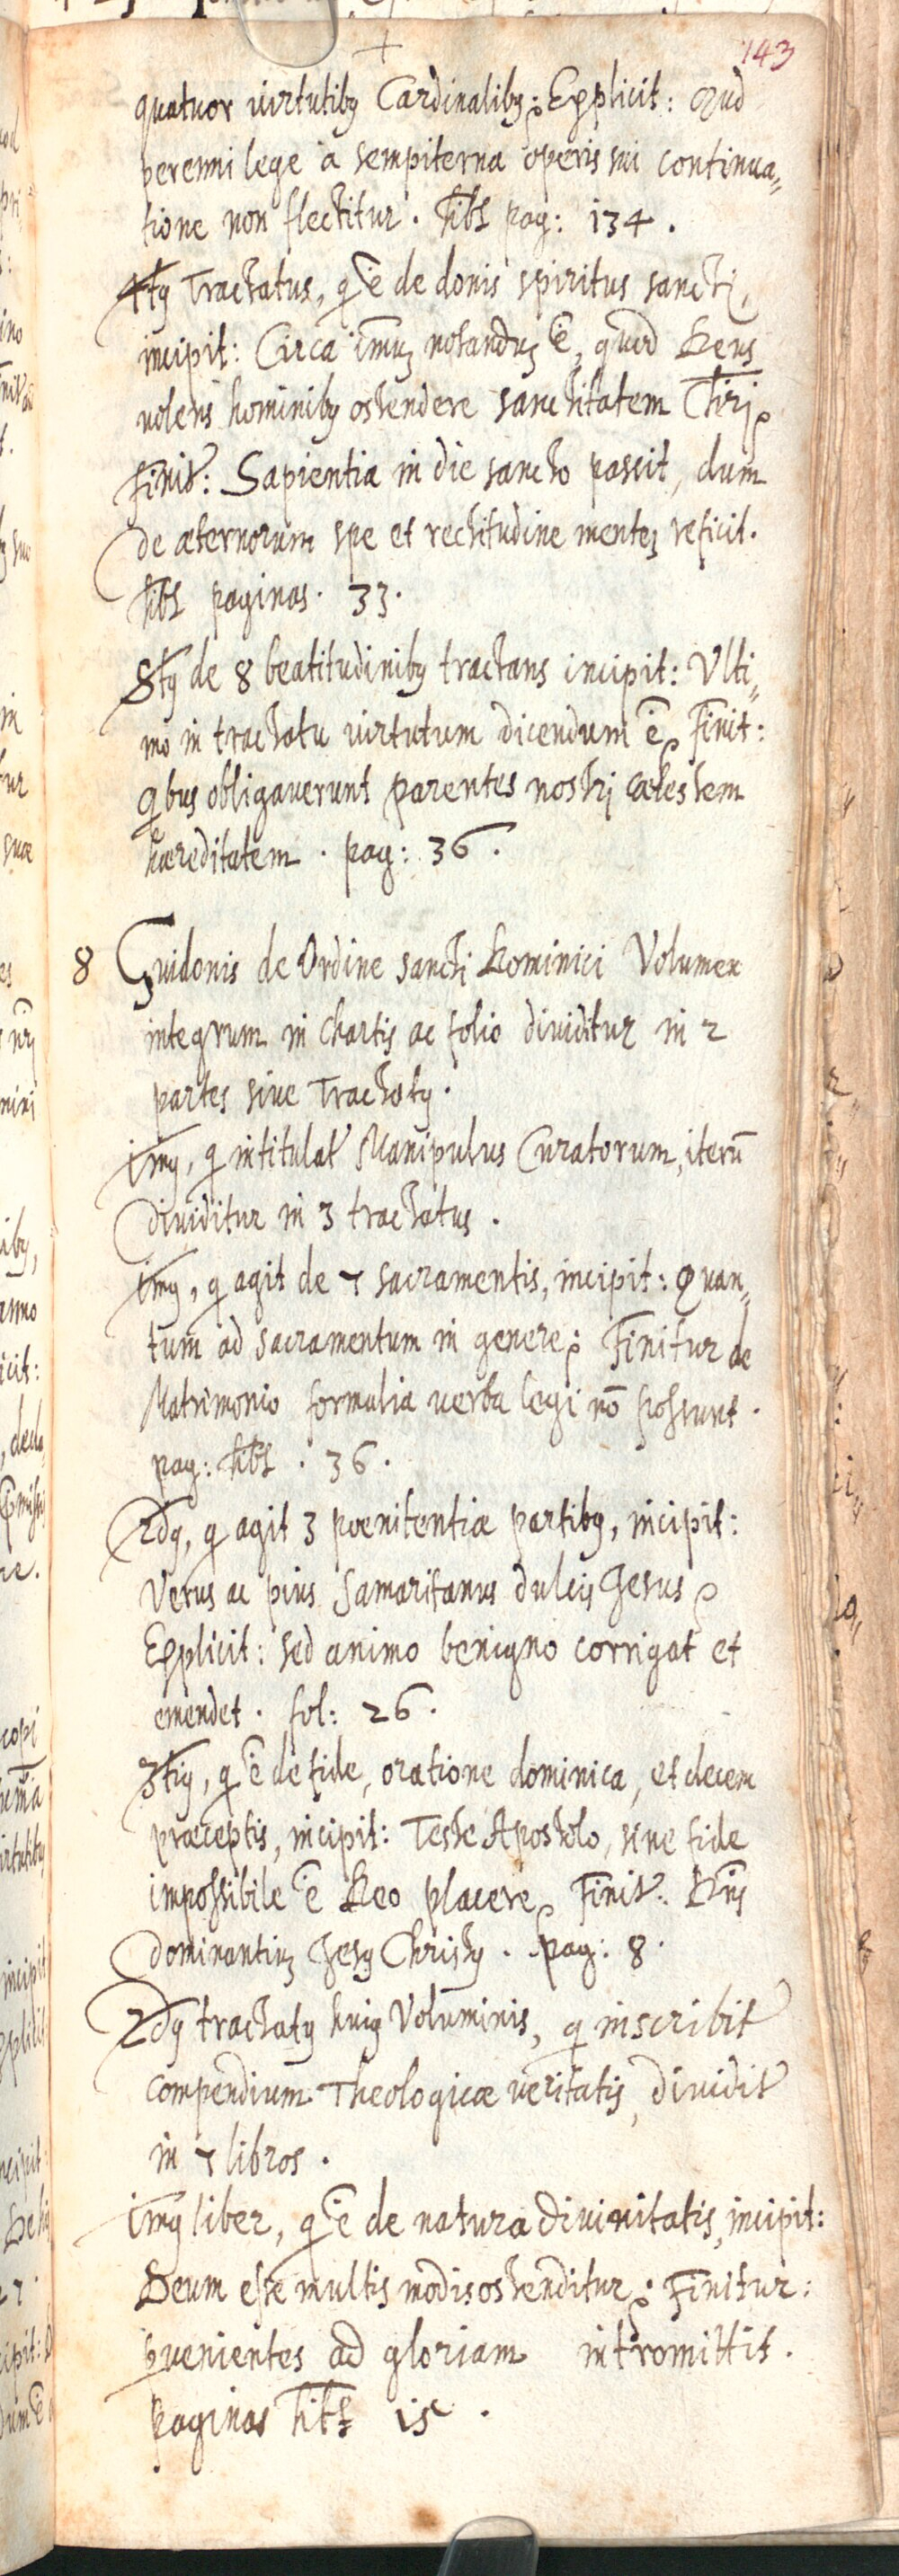 143
quatuor virtutibꝫ Cardinalibꝫ: Explicit: quod
perenni lege a sempiterna operis sui continua„
tione non flectitur. hẽt pag: 134.
4tꝰ Tractatus, q ẽ de donis spiritus sancti,
incipit: Circa imũ notandũ ẽ, quod Deus
volens hominibꝫ ostendere sanctitatem Chri
finit᷑: Sapientia in die sancto pascit, dum
de æternorum spe et rectitudine mentẽ reficit.
hẽt paginas. 33.
8tꝰ de 8 beatitudinibꝫ tractans incipit: Ulti„
mo in tractatu virtutum dicendum ẽ. Finit:
qbus obligaverunt parentes nostri cælestem
hæreditatem. pag: 36.
8 Guidonis de Ordine sancti Dominici Volumen
integrum in chartis ac folio dividitur in 2
partes sive Tractatꝰ.
imꝰ, q intitulat᷑ Manipulus Curatorum, iterũ
dividitur in 3 tractatus.
imꝰ, q agit de 7 sacramentis, incipit: Quan„
tum ad sacramentum in genere: Finitur de
Matrimonio formalia verba legi nõ possunt.
pag: hẽt. 36.
2dꝰ, q agit 3 poenitentiæ partibꝫ, incipit:
Verus ac pius Samaritanus dulcis Jesus
Explicit: sed animo benigno corrigat et
emendet. fol: 26.
3tiꝰ, q ẽ de fide, oratione dominica, et decem
præceptis, incipit: Teste Apostolo, sine fide
impossibile ẽ Deo placere. Finit᷑: Dñs
dominantiũ Jesꝰ Christꝰ. pag: 8.
2dꝰ tractatꝰ huiꝰ Voluminis, q inscribit᷑
compendium Theologicæ veritatis, dividit᷑
in 7 libros.
imꝰ liber, q ẽ de natura Divinitatis, incipit:
Deum esse multis modis ostenditur: Finitur:
pvenientes ad gloriam intromittit.
paginas hẽt 15.